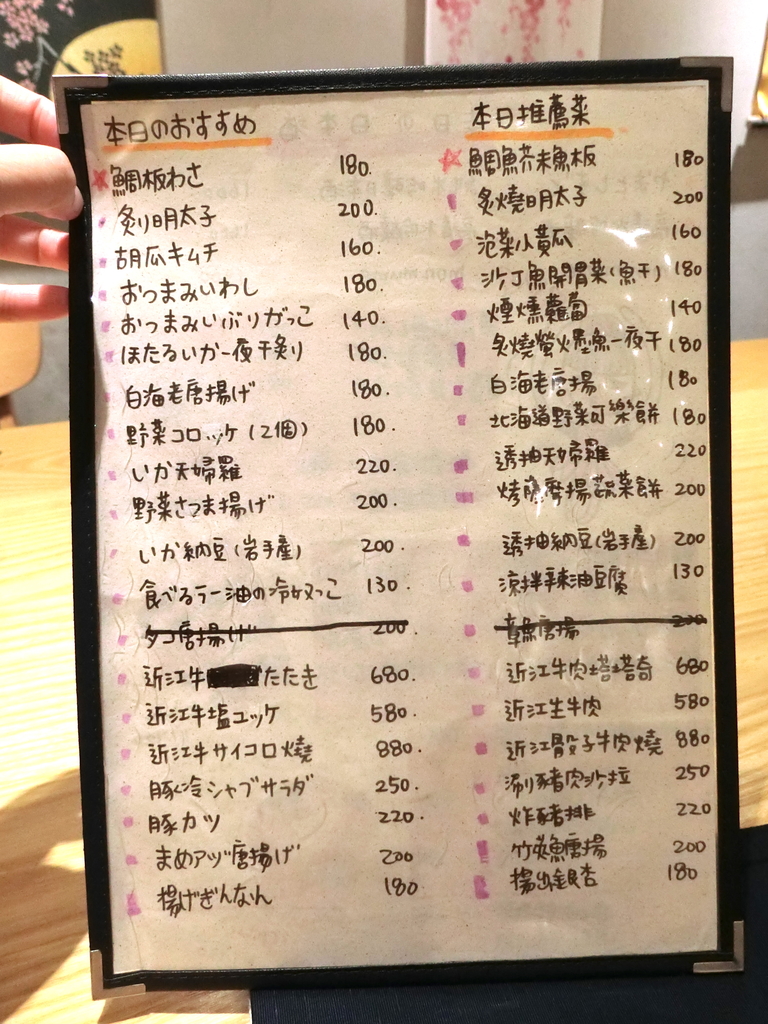 本日のおすすめ
鯛板わさ 180.
炙り明太子 200.
胡瓜キムチ 160.
おつまみいわし 180.
おつまみいぶりがっこ 140.
ほたるいか一夜干炙り 180.
白海老唐揚げ 180.
野菜コロッケ(2個) 180.
いか天婦羅 220.
野菜さつま揚げ 200.
いか納豆(岩手産) 200.
食べるラー油の冷奴っこ 130.
タコ唐揚げ 200.
近江牛たたき 680.
近江牛塩ユッケ 580.
近江牛サイコロ燒 880.
豚冷シャブサラダ 250.
豚カツ 220.
まめアジ唐揚げ 200
揚げぎんなん 180
本日推薦菜
鯛魚芥末魚板 180
炙燒明太子 200
泡菜小黄瓜 160
沙丁魚開胃菜(魚干) 180
煙燻蘿蔔 140
炙燒螢火墨魚一夜干 180
白海老唐揚 180
北海道野菜可樂餅 180
透抽天婦羅 220
烤薩摩揚蔬菜餅 200
透抽納豆(岩手產) 200
涼拌辣油豆腐 130
章魚唐揚 200
近江牛肉塔塔奇 680
近江生牛肉 580
近江骰子牛肉燒 880
涮豬肉沙拉 250
炸豬排 220
竹筴魚唐揚 200
揚出銀杏 180